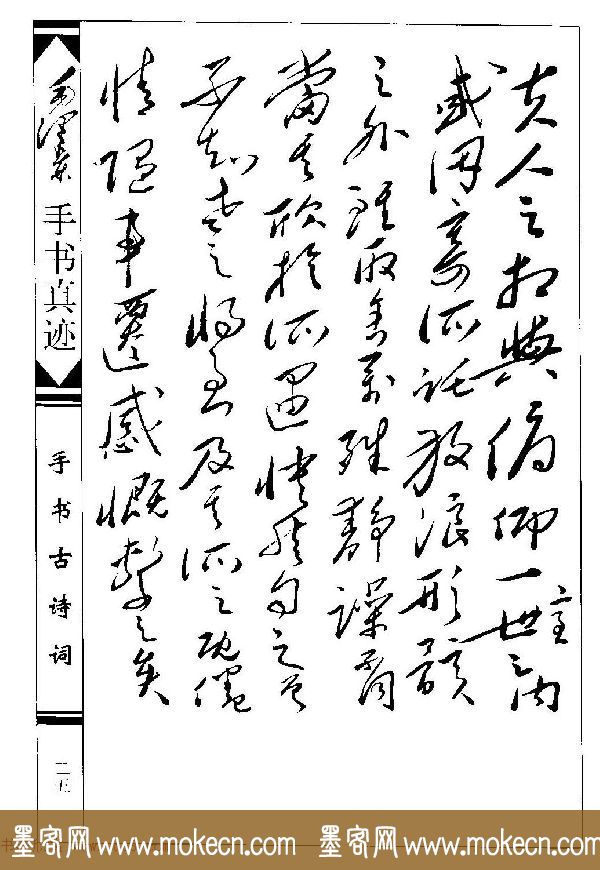 夫人之相與俯仰一世之內
或因寄所託放浪形骸
之外雖取舍萬殊靜躁不同
當其欣於所遇快然自足
不知老之將至及其所之既倦
情隨事遷感慨繫之矣
毛澤東
手书真迹
手书古诗词
二五
墨客网 www.mokecn.com 墨客网 www.mokecn.com